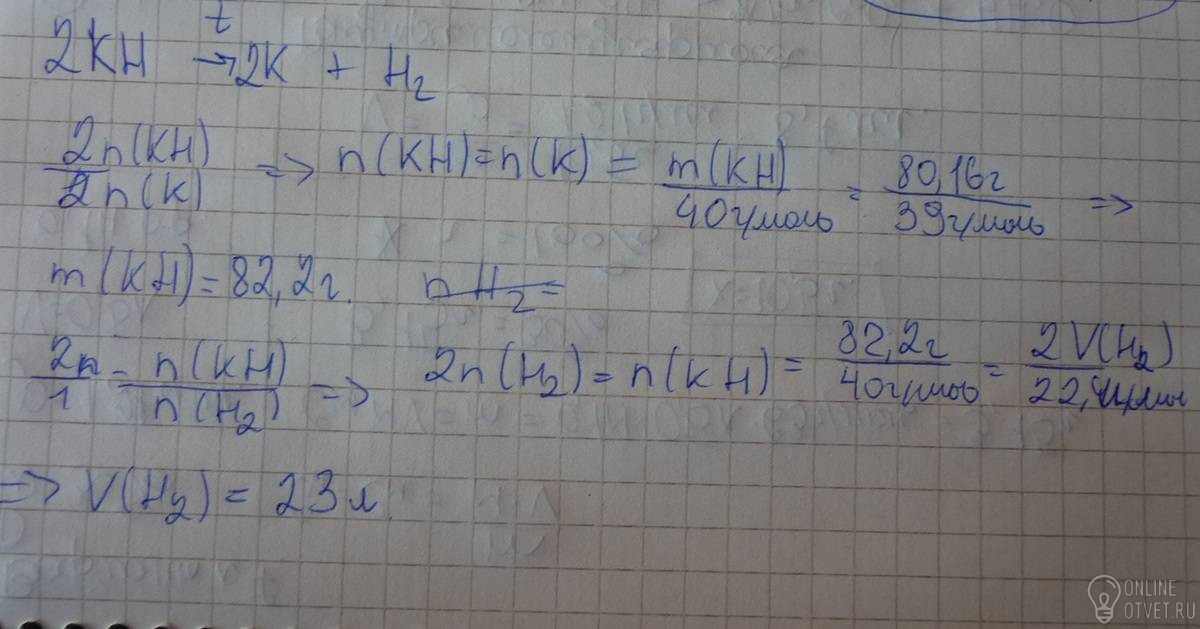 t
2KH → 2K + H₂
2n(KH)/2n(K) => n(KH) = n(K) = m(KH)/40г/моль = 80,16г/39г/моль =>
m(KH) = 82,2г. n H₂ =
2n/1 = n(KH)/n(H₂) => 2n(H₂) = n(KH) = 82,2г/40г/моль = 2V(H₂)/22,4л/моль
=> V(H₂) = 23 л.
ONLINE
OTVET.RU